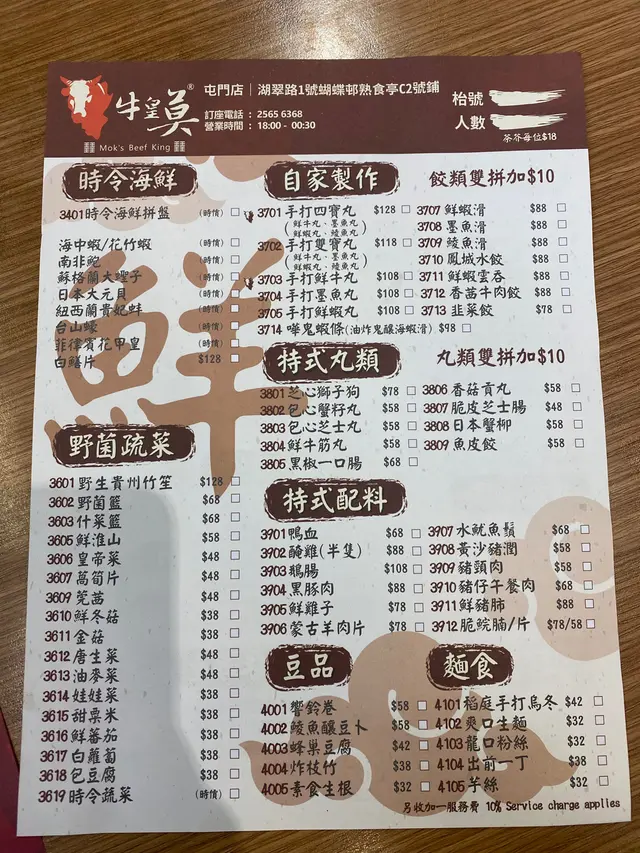 牛皇莫®
Mok's Beef King
屯門店｜湖翠路1號蝴蝶邨熟食亭C2號鋪
訂座電話：2565 6368
營業時間：18:00 - 00:30
枱號
人數
茶芥每位$18
時令海鮮
3401 時令海鮮拼盤 (時價)
海中蝦/花竹蝦 (時價)
南非鮑 (時價)
蘇格蘭大蟶子 (時價)
日本大元貝 (時價)
紐西蘭貴妃蚌 (時價)
台山蠔 (時價)
菲律賓花甲皇 (時價)
白鱔片 $128
野菌蔬菜
3601 野生貴州竹笙 $128
3602 野菌籃 $68
3603 什菜籃 $68
3605 鮮淮山 $58
3606 皇帝菜 $48
3607 萵筍片 $48
3609 筦茜 $48
3610 鮮冬菇 $38
3611 金菇 $38
3612 唐生菜 $48
3613 油麥菜 $48
3614 娃娃菜 $38
3615 甜粟米 $38
3616 鮮蕃茄 $38
3617 白蘿蔔 $38
3618 包豆腐 $38
3619 時令蔬菜 (時價)
鮮
自家製作 餃類雙拼加$10
3701 手打四寶丸 $128
(鮮牛丸、墨魚丸
鮮蝦丸、鯪魚丸)
3702 手打雙寶丸 $118
(鮮牛丸、墨魚丸
鮮蝦丸、鯪魚丸)
3703 手打鮮牛丸 $108
3704 手打墨魚丸 $108
3705 手打鮮蝦丸 $108
3714 嘩鬼蝦條(油炸鬼釀海蝦滑) $98
3707 鮮蝦滑 $88
3708 墨魚滑 $88
3709 鯪魚滑 $88
3710 鳳城水餃 $88
3711 鮮蝦雲吞 $88
3712 香茜牛肉餃 $88
3713 韮菜餃 $78
特式丸類 丸類雙拼加$10
3801 芝心獅子狗 $78
3802 包心蟹籽丸 $58
3803 包心芝士丸 $58
3804 鮮牛筋丸 $58
3805 黑椒一口腸 $68
3806 香菇貢丸 $58
3807 脆皮芝士腸 $48
3808 日本蟹柳 $58
3809 魚皮餃 $58
特式配料
3901 鴨血 $68
3902 醃雞(半隻) $88
3903 鵝腸 $108
3904 黑豚肉 $88
3905 鮮雞子 $78
3906 蒙古羊肉片 $78
3907 水魷魚鬚 $68
3908 黃沙豬潤 $58
3909 豬頸肉 $58
3910 豬仔午餐肉 $68
3911 鮮豬肺 $88
3912 脆鯇腩/片 $78/58
豆品
4001 響鈴卷 $58
4002 鯪魚釀豆卜 $58
4003 蜂巢豆腐 $42
4004 炸枝竹 $38
4005 素食生根 $32
麵食
4101 稻庭手打烏冬 $42
4102 爽口生麵 $32
4103 龍口粉絲 $32
4104 出前一丁 $38
4105 芋絲 $32
另收加一服務費 10% Service charge applies